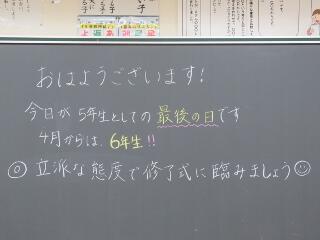 おはようございます!
今日が5年生としての最後の日です
4月からは、6年生!!
◎立派な態度で修了式に臨みましょう☺